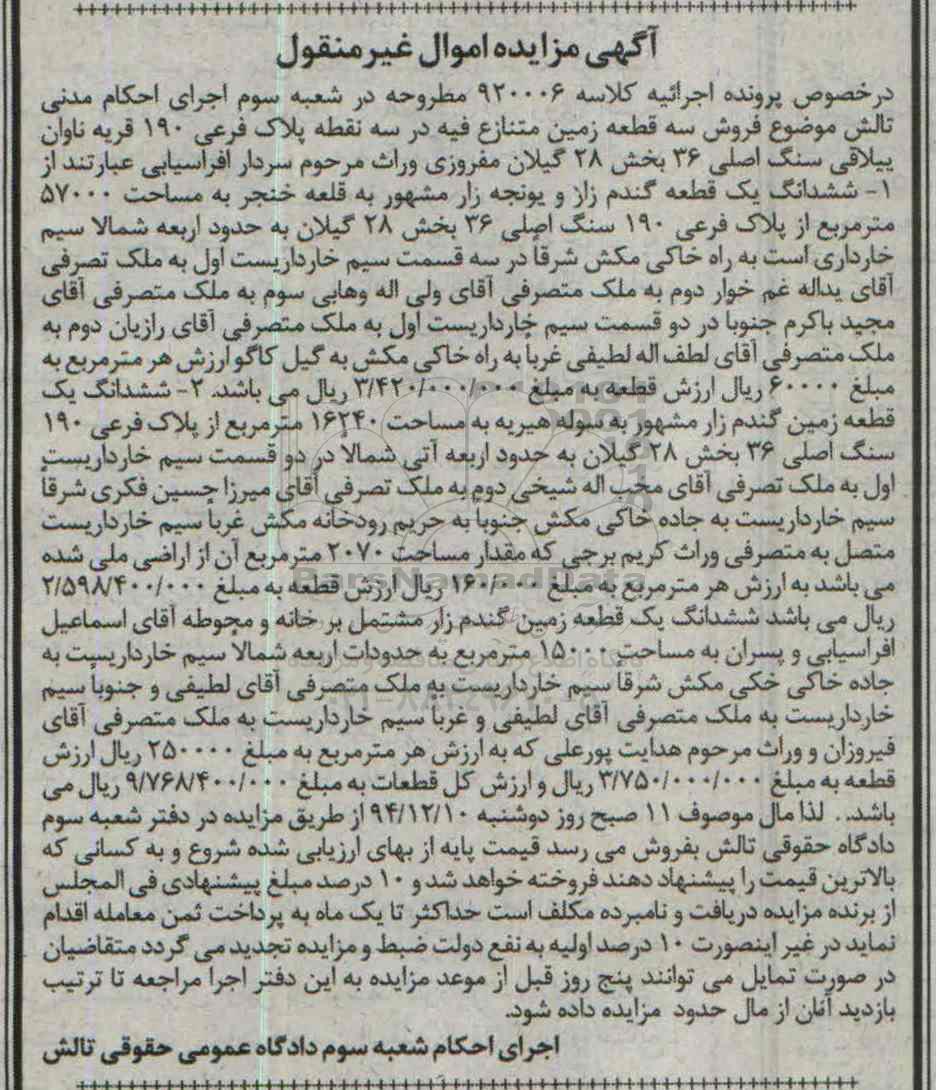 آگهی مزایده اموال غیرمنقول
درخصوص پرونده اجرائیه کلاسه ۹۲۰۰۰۶ مطروحه در شعبه سوم اجرای احکام مدنی
تالش موضوع فروش سه قطعه زمین متنازع فیه در سه نقطه پلاک فرعی ۱۹۰ قریه ناوان
ییلاقی سنگ اصلی ۳۶ بخش ۲۸ گیلان مفروزی وراث مرحوم سردار افراسیابی عبارتند از
۱- ششدانگ یک قطعه گندم زار و یونجه زار مشهور به قلعه خنجر به مساحت ۵۷۰۰۰
مترمربع از پلاک فرعی ۱۹۰ سنگ اصلی ۳۶ بخش ۲۸ گیلان به حدود اربعه شمالا سیم
خارداری است به راه خاکی مکش شرقاً در سه قسمت سیم خارداریست اول به ملک تصرفی
آقای یداله غم خوار دوم به ملک متصرفی آقای ولی اله وهابی سوم به ملک متصرفی آقای
مجید باکرم جنوبا در دو قسمت سیم خارداریست اول به ملک متصرفی آقای رازیان دوم به
ملک متصرفی آقای لطف اله لطیفی غربا به راه خاکی مکش به گیل کاگو ارزش هر مترمربع به
مبلغ ۶۰۰۰۰ ریال ارزش قطعه به مبلغ ۳/۴۲۰/۰۰۰/۰۰۰ ریال می باشد. ۲- ششدانگ یک
قطعه زمین گندم زار مشهور به سوله هیریه به مساحت ۱۶۲۴۰ مترمربع از پلاک فرعی ۱۹۰
سنگ اصلی ۳۶ بخش ۲۸ گیلان به حدود اربعه آتی شمالا در دو قسمت سیم خارداریست
اول به ملک تصرفی آقای محب اله شیخی دوم به ملک تصرفی آقای میرزا حسین فکری شرقاً
سیم خارداریست به جاده خاکی مکش جنوباً به حریم رودخانه مکش غرباً سیم خارداریست
متصل به متصرفی وراث کریم برجی که مقدار مساحت ۲۰۷۰ مترمربع آن از اراضی ملی شده
می باشد به ارزش هر مترمربع به مبلغ ۱۶۰/۰۰۰ ریال ارزش قطعه به مبلغ ۲/۵۹۸/۴۰۰/۰۰۰
ریال می باشد ششدانگ یک قطعه زمین گندم زار مشتمل بر خانه و محوطه آقای اسماعیل
افراسیابی و پسران به مساحت ۱۵۰۰۰ مترمربع به حدودات اربعه شمالا سیم خارداریست به
جاده خاکی خکی مکش شرقا سیم خارداریست به ملک متصرفی آقای لطیفی و جنوباً سیم
خارداریست به ملک متصرفی آقای لطیفی و غرباً سیم خارداریست به ملک متصرفی آقای
فیروزان و وراث مرحوم هدایت پورعلی که به ارزش هر مترمربع به مبلغ ۲۵۰۰۰۰ ریال ارزش
قطعه به مبلغ ۳/۷۵۰/۰۰۰/۰۰۰ ریال و ارزش کل قطعات به مبلغ ۹/۷۶۸/۴۰۰/۰۰۰ ریال می
باشد.. لذا مال موصوف ۱۱ صبح روز دوشنبه ۹۴/۱۲/۱۰ از طریق مزایده در دفتر شعبه سوم
دادگاه حقوقی تالش بفروش می رسد قیمت پایه از بهای ارزیابی شده شروع و به کسانی که
بالاترین قیمت را پیشنهاد دهند فروخته خواهد شد و ۱۰ درصد مبلغ پیشنهادی فی المجلس
از برنده مزایده دریافت و نامبرده مکلف است حداکثر تا یک ماه به پرداخت ثمن معامله اقدام
نماید در غیر اینصورت ۱۰ درصد اولیه به نفع دولت ضبط و مزایده تجدید می گردد متقاضیان
در صورت تمایل می توانند پنج روز قبل از موعد مزایده به این دفتر اجرا مراجعه تا ترتیب
بازدید آنان از مال حدود مزایده داده شود.
اجرای احکام شعبه سوم دادگاه عمومی حقوقی تالش
ParsNamadData